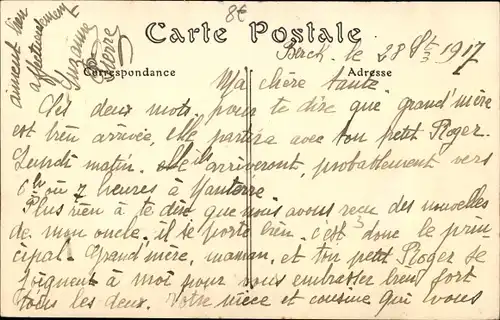 8€
Carte Postale
Berck. le 28 1917
Correspondance
Adresse
Ma chère tante.
Ces deux mots, pour te dire que grand'mère
est bien arrivée, elle partira avec ton petit Roger.
Lundi matin. ils arriveront, probablement vers
6h ou 7 heures à Nanterre
Plus rien à te dire que nous avons reçu des nouvelles
de mon oncle. il se porte bien c'est donc le prin
cipal. Grand'mère, maman, et ton petit Roger se
joignent à moi pour vous embrasser bien fort
tous les deux. Votre nièce et cousine qui vous
aiment bien
affectueusement
Suzanne
Pierre